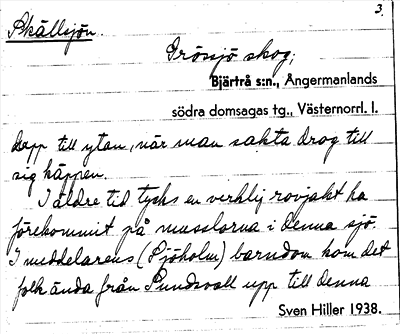 Skällsjön.
3.
Grössjö skog,
Bjärtrå s:n., Ångermanlands
södra domsagas tg., Västernorrl. l.
depp till ytan, när man sakta drog till
sig käppen.
I äldre tid tycks en verklig rovjakt ha
förekommit på musslorna i denna sjö.
I meddelarens (Sjöholm) barndom kom det
folk ända från Sundsvall upp till denna
Sven Hiller 1938.